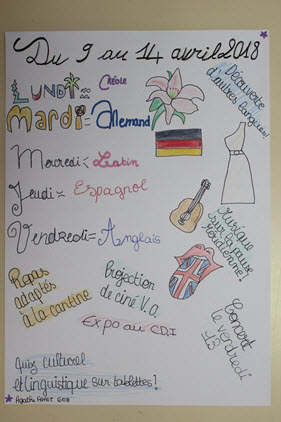 Du 9 au 14 avril 2018
Découverte
d'autres langues!
LUNDI = CRÉOLE
Mardi = Allemand
Mercredi = Latin
Jeudi = Espagnol
Vendredi = Anglais
Musique
sur la pause
Méridienne!
Repas
adaptés
à la cantine
Projection
de ciné V.O.
Concert
le vendredi
13
Expo au CDI
Quiz culturel
et linguistique sur tablettes!
Agathe